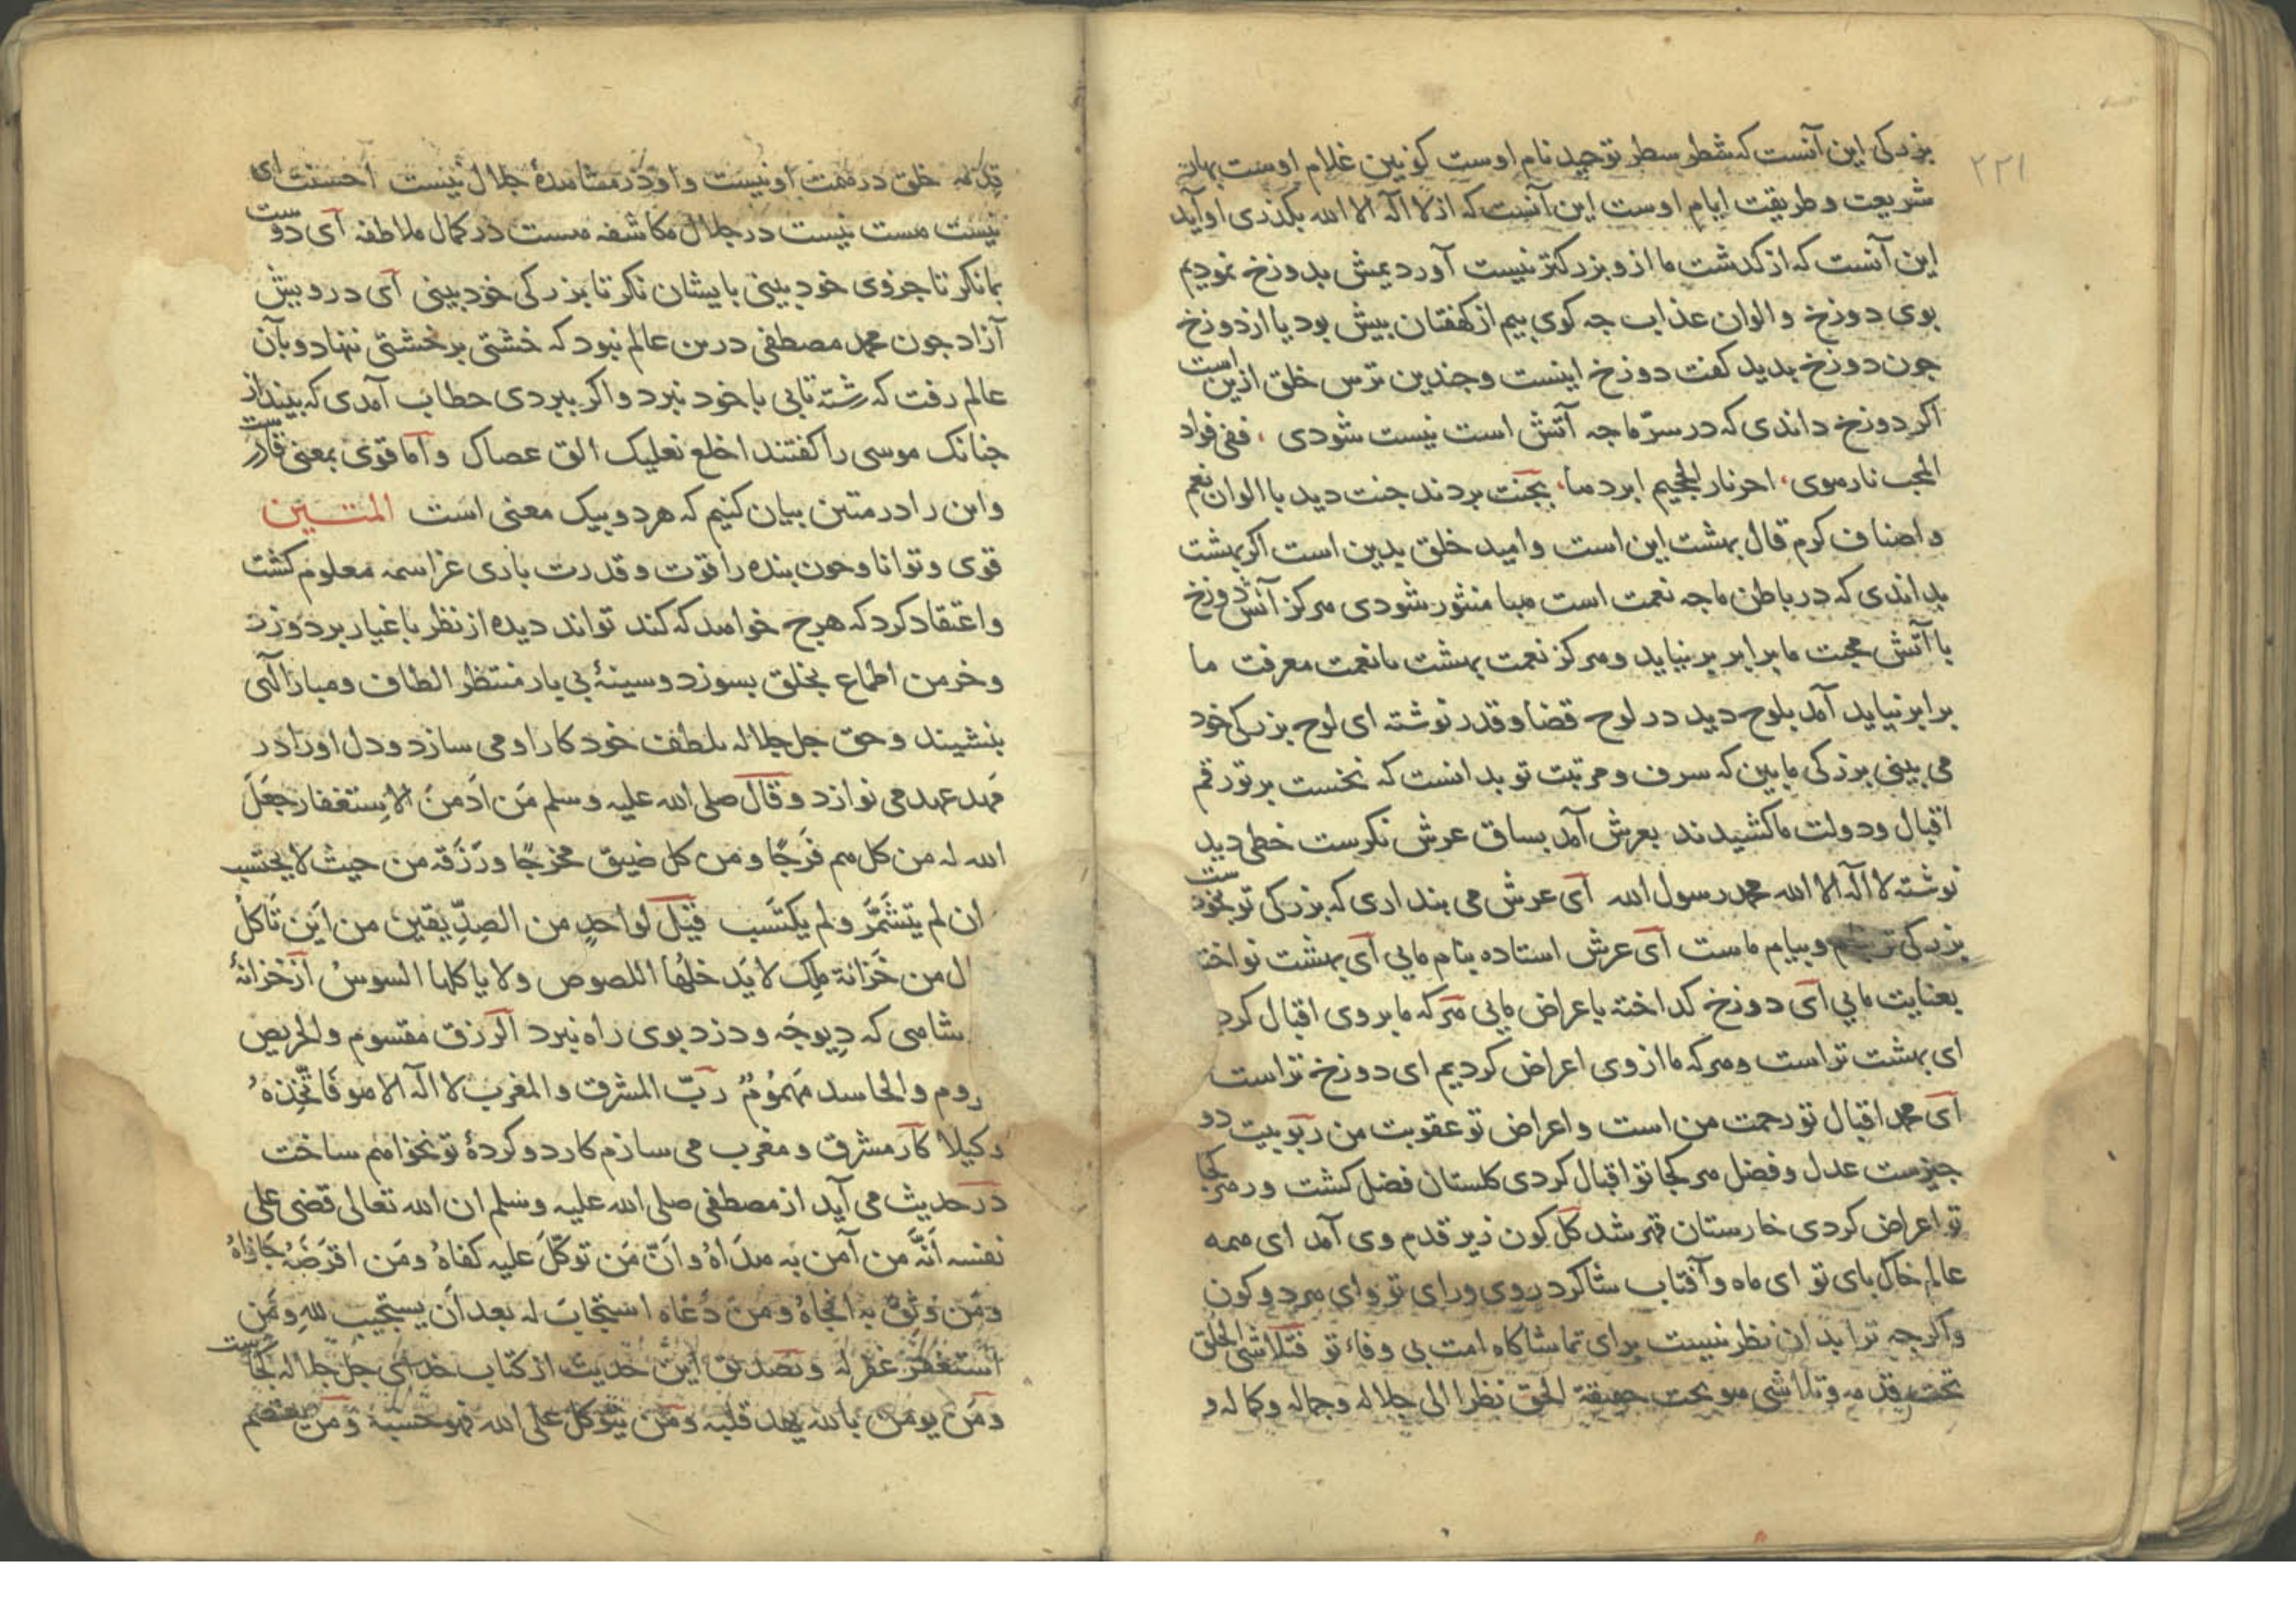 ۲۲۱
بزرکی این آنست که شطر سطر توحید نام اوست کونین غلام اوست بهانه
شریعت و طریقت ایام اوست این آنست که از لا اله الا الله بکذری او آید
این آنست که از کذشت ما ازو بزرکتر نیست آوردیمش بدوزخ نمودیم
بوی دوزخ و الوان عذاب جه کوی بیم از کفتان بیش بود یا از دوزخ
جون دوزخ بدید کفت دوزخ اینست و جندین ترس خلق ازین است
اکر دوزخ داندی که در سرّ ما جه آتش است نیست شودی ، ففی فواد
المحب نار هوی ، احر نار الجحیم ابردها ، بجنت بردند جنت دید با الوان نعم
و اصناف کرم قال بهشت این است و امید خلق بدین است اکر بهشت
بداندی که در باطن ما جه نعمت است هبا منثور شودی هرکز آتش دوزخ
با آتش محبت ما برابر بر نیاید و هرکز نعمت بهشت با نعمت معرفت ما
برابر نیاید آمد بلوح دید در لوح قضا و قدر نوشته ای لوح بزرکی خود
می بینی بزرکی ما بین که سرف و مرتبت تو بدانست که نخست بر تو رقم
اقبال و دولت ما کشیدند بعرش آمد بساق عرش نکرست خطی دید
نوشته لا اله الا الله محمد رسول الله آی عرش می بنداری که بزرکی تو بخودست
بزرکی تو و بیام ماست آی عرش استاده بنام مایی آی بهشت نواخته
بعنایت مایی آی دوزخ کداخته باعراض مایی هرکه ما بروی اقبال کرد
ای بهشت تراست و هرکه ما از وی اعراض کردیم ای دوزخ تراست
آی محمد اقبال تو رحمت من است و اعراض تو عقوبت من ربوبیت دو
جیزست عدل و فضل هر کجا تو اقبال کردی کلستان فضل کشت و هر کجا
تو اعراض کردی خارستان قهر شد کل کون زیر قدم وی آمد ای همه
عالم خاک بای تو ای ماه و آفتاب شاکرد روی و رای تو وای هر دو کون
واکرجه ترا بدان نظر نیست برای تماشاکاه امت بی وفاء تو فتلاشی الخلق
تحت قدمه و تلاشی هو تحت حقیقة الحق نظرا الی جلاله و جماله و کماله و
قدمه خلق در همت او نیست و او در مشاهدهٔ جلال نیست احسنت ای
نیست مست نیست در جلال مکاشفه مست در کمال ملاطفه آی دوست
بما نکر تا جزوی خود بینی بایشان نکر تا بزرکی خود بینی آی درویش
آزاد جون محمد مصطفی درین عالم نبود که خشتی بر خشتی ننهاد و بآن
عالم رفت که رشته تابی با خود نبرد و اکر ببردی خطاب آمدی که بینداز
جنانک موسی را کفتند اخلع نعلیک الق عصاک و اما قوی بمعنی قادرست
و این را در متین بیان کنیم که هر دو بیک معنی است المتین
قوی و توانا و جون بنده را قوت و قدرت باری عز اسمه معلوم کشت
و اعتقاد کرد که هرچ خواهد که کند تواند دیده از نظر باغیار بردوزد
و خرمن اطماع بخلق بسوزد و سینهٔ بی بار منتظر الطاف و مبار الهی
بنشیند و حق جل جلاله بلطف خود کار او می سازد و دل او را در
مهد عهد می نوازد و قال صلی الله علیه و سلم مَن اَدمَنَ الاِستغفار جعَلَ
الله له من کل هم فَرَجًا و من کل ضیق مخرجًا و رَزَقه من حیث لا یحتسب
ان لم یتشَمَّر و لم یکتسب قیل لواحدٍ من الصِدّیقین من این تَاکلُ
ل من خَزانة مِلک لا یَدخلهُا اللصوص و لا یاکلها السوسُ از خزانهٔ
بشاهی که دیوچه و دزد بوی راه نبرد الرزق مقسوم و الحریص
روم و الحاسد مَهمُومٌ ربّ المشرق و المغرب لا اله الا هو فَاتّخِذهُ
وکیلا کار مشرق و مغرب می سازم کارد و کردهٔ تو نخواهم ساخت
در حدیث می آید از مصطفی صلی الله علیه و سلم ان الله تعالی قضی علی
نفسه اَنّه من آمن به هداهُ و انّ مَن توکّلَ علیه کفاهُ و مَن اقرَضَهُ جَازاهُ
و مَن وَثِقَ به انجاهُ و مَن دَعَاه استجابَ له بعد ان یستجیب للهِ و مَن
استغفر غفر له و تصدیق این حدیث از کتاب خدای جل جلاله کجاست
و مَن یومن بالله یهد قلبه و مَن یتوکل علی الله فهو حسبه و مَن یعتصم